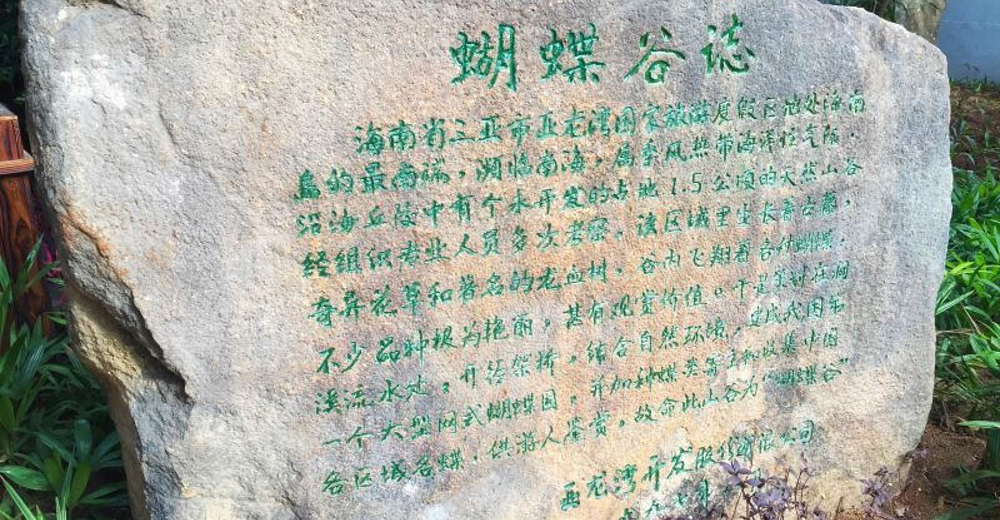 蝴蝶谷誌
海南省三亚市亚龙湾国家旅游度假区地处海南
岛的最南端，濒临南海，属季风热带海洋性气候，
沿海丘陵中有个未开发的占地1.5公顷的天然山谷
经组织专业人员多次考察，该区域里生长着古藤，
奇异花草和著名的龙血树，谷内飞翔着各种蝴蝶，
不少品种极为艳丽，甚有观赏价值。于是策划在涧
溪流水处，开径架桥，结合自然环境，建成我国第
一个大型网式蝴蝶园，并加种蝶类寄主和收集中国
各区域名蝶，供游人鉴赏，故命此山谷为“蝴蝶谷”
亚龙湾开发股份有限公司